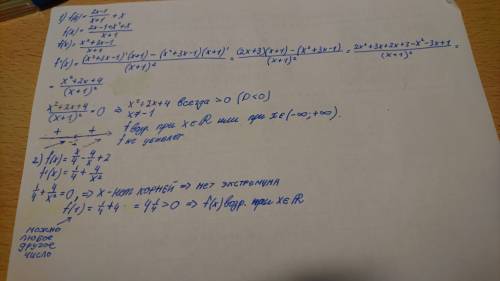 1) f(x) = (2x-1)/(x+1) + x
f(x) = (2x-1+x²+x)/(x+1)
f(x) = (x²+3x-1)/(x+1)
f'(x) = ((x²+3x-1)'(x+1) - (x²+3x-1)(x+1)')/(x+1)² = ((2x+3)(x+1) - (x²+3x-1))/(x+1)² = (2x²+3x+2x+3-x²-3x+1)/(x+1)² =
= (x²+2x+4)/(x+1)²
(x²+2x+4)/(x+1)² = 0 ⇒ x²+2x+4 всегда > 0 (D<0)
x ≠ -1
+ + f возр. при x∈ℝ или при x∈(-∞;+∞).
-1 f не убывает
2) f(x) = x/4 - 4/x + 2
f'(x) = 1/4 + 4/x²
1/4 + 4/x² = 0, ⇒ x - нет корней ⇒ нет экстремума
f'(1) = 1/4 + 4 = 4 1/4 > 0 ⇒ f(x) возр. при x∈ℝ
можно
любое
другое
число